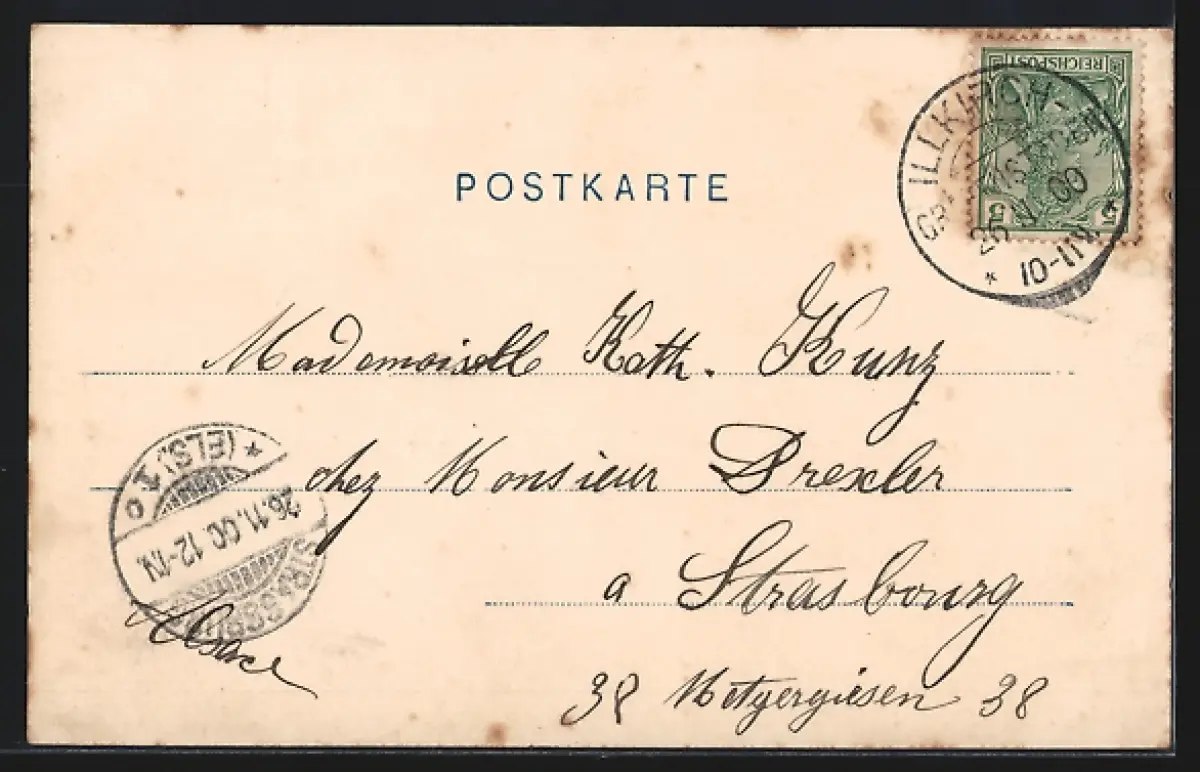 POSTKARTE
REICHSPOST
5 5
ILLKIRCH-
26 00
* 10-11V. *
Mademoiselle Kath. Kunz
chez Monsieur Drexler
a Strasbourg
38 Metzergiesen 38
Alsace
STRASSBURG
26.11.00. 12-1N.
* (ELS.) 1 o